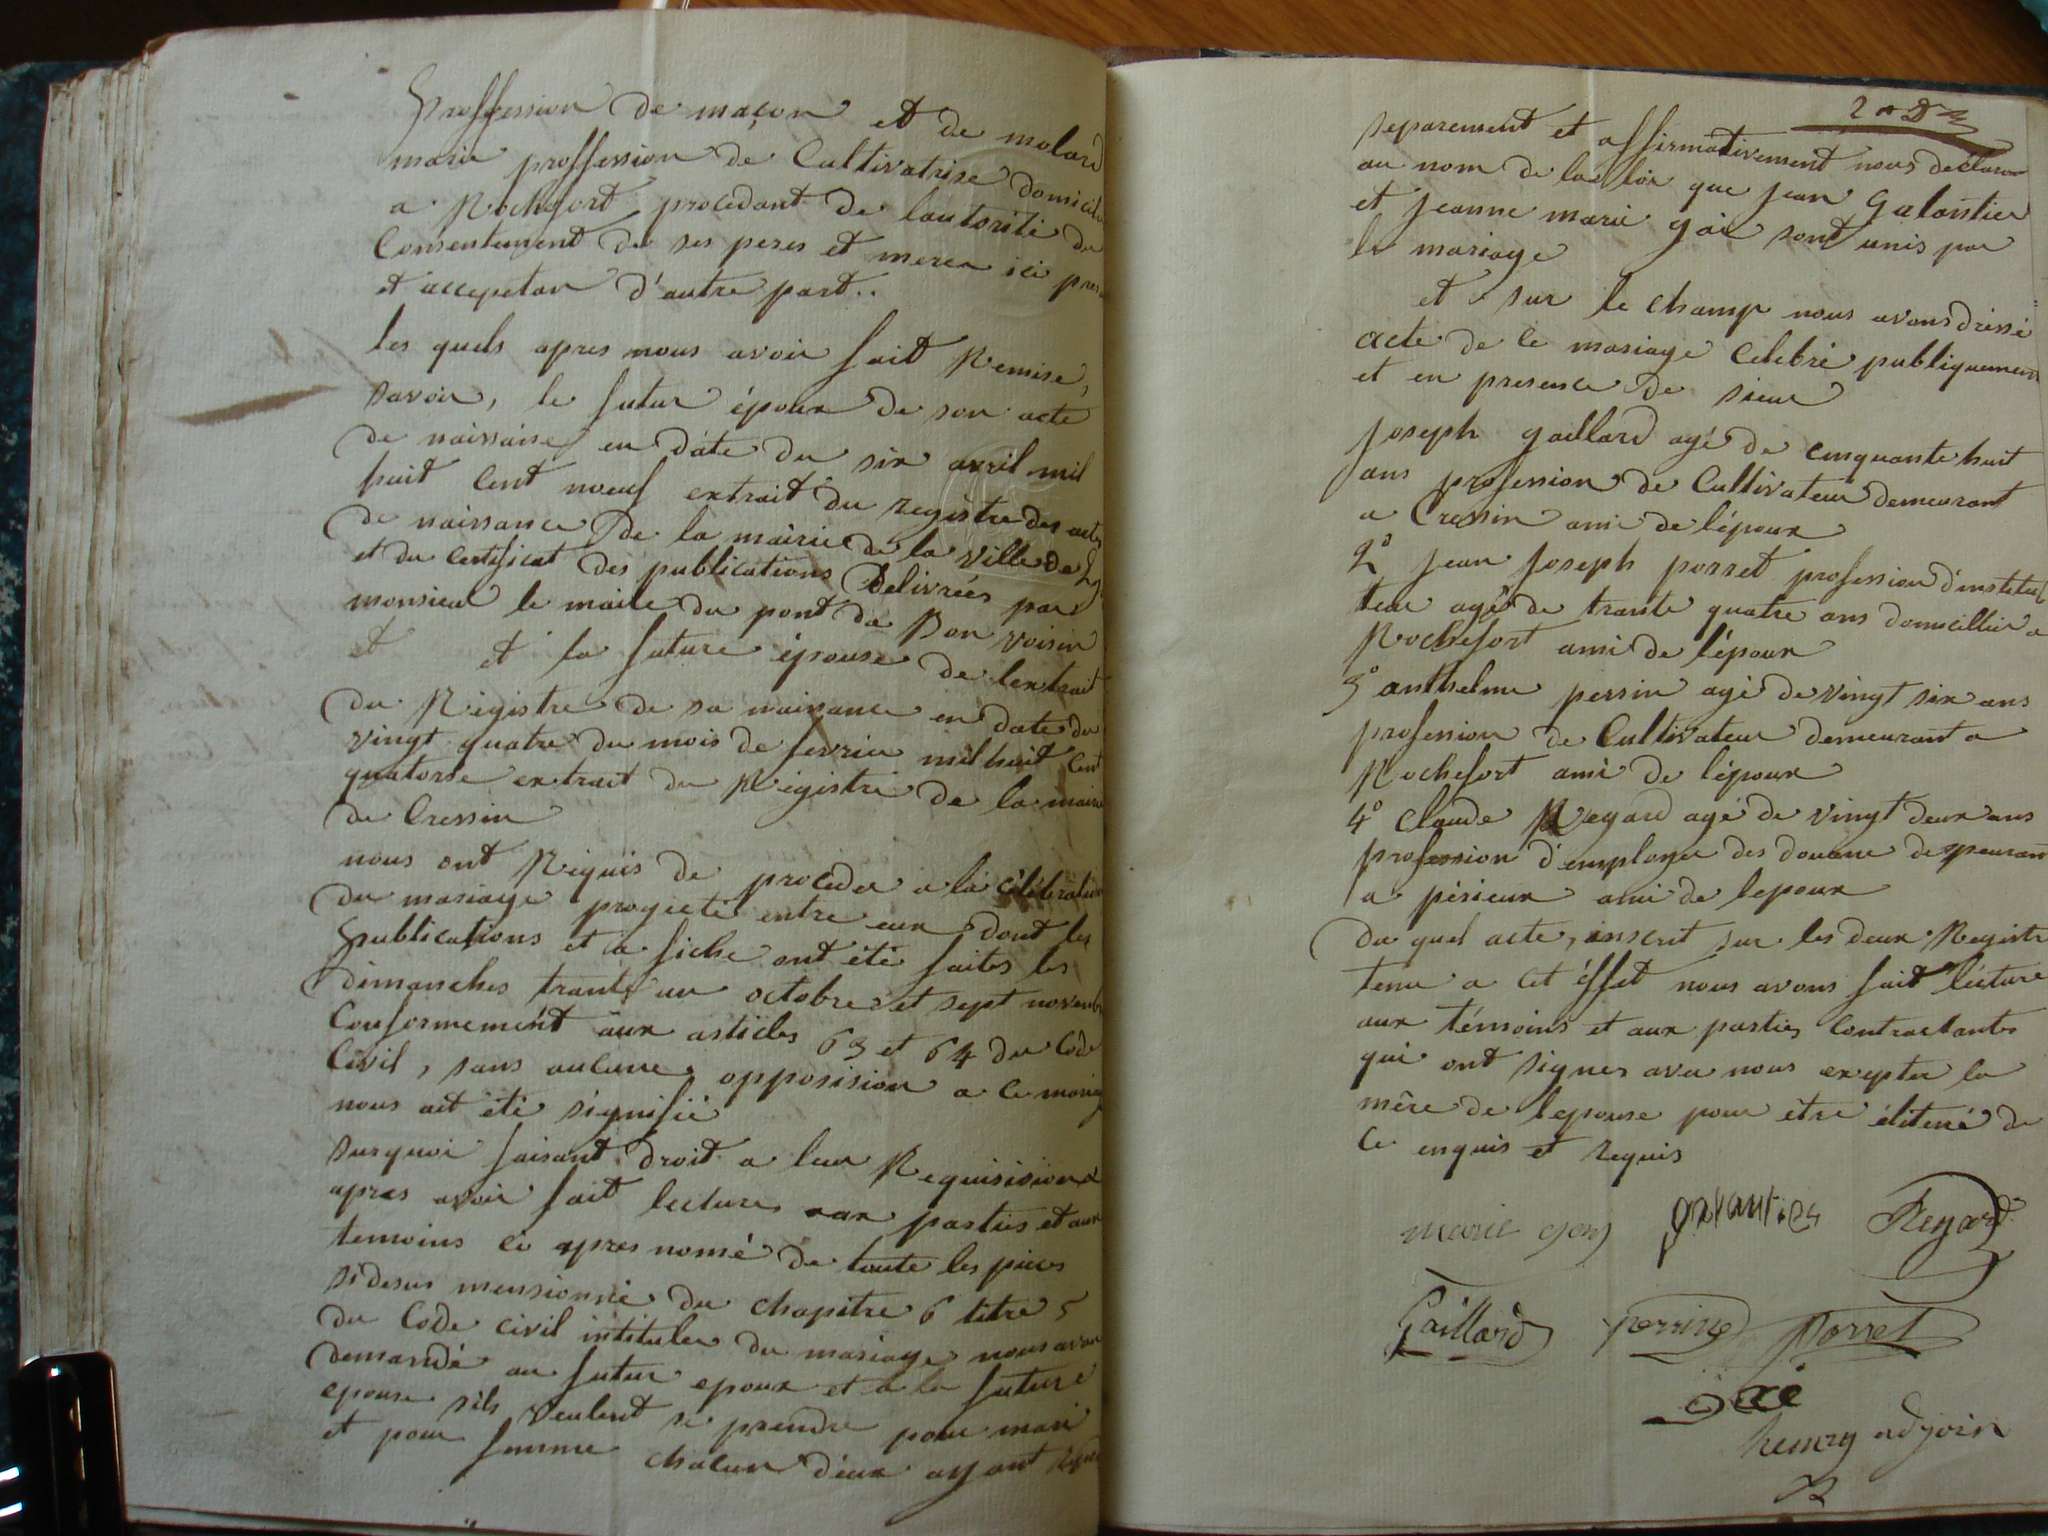 proffession de maçon et de molard
marie proffession de Cultivatrise domicilie
a Rochefort procedant de lautorité du
Consentement de ses peres et meres ici pres
et acceptan d'autre part..
les quels apres nous avoir fait Remise,
savoir, le futur époux de son acte
de naissance en date du six avril mil
huit Cent noeuf extrait du registre des actes
de naissance De la mairie de la ville de
et du certificat des publications Delivrées par
monsieur le maire du pont de Bon voisin
et et la future épouse de lextrait
du Registre de sa naissance en date du
vingt quatre du mois de fevrier mil huit Cent
quatorse extrait du Registre de la mairie
de Cressin
nous ont Requis de proceder a la célébration
du mariage progeté entre eux dont les
publications et a fiche ont été faites les
dimanches trante un octobre et sept novembre
Conformement aux articles 63 et 64 du Code
Civil, sans aucune opposision a ce mariage
nous ait été signifié
surquoi faisant droit a leur Requisision et
apres avoir fait lecture aux parties et aux
temoins ci apres nomé de toute les pieces
sidesus mensionné du chapitre 6 titre 5
du Code civil intituler du mariage nous avon
demandé au futur epoux et a la future
epouse sils veulent se prendre pour mari
et pour femme chacun d'eux ayant
separement et affirmativement nous declaron
au nom de la loi que jean Galantier
et jeanne marie goi sont unis par
le mariage
et sur le champ nous avons dressé
acte de ce mariage Célébré publiquement
et en presence de sieur
joseph gaillard agé de cinquante huit
ans profession de Cultivateur demeurant
a Cressin ami de l'époux
2° jean joseph porret profession d'institu
teur agé de trante quatre ans domicillier a
Rochefort ami de l'époux
3° anthelme perrin agé de vingt six ans
profession de Cultivateur demeurant a
Rochefort ami de l'époux
4° claude Regard agé de vingt deux ans
profession d'employer des douane demeurant
a périeux ami de lepoux
du quel acte, inscrit sur les deux Registr
tenu a cet éffet nous avons fait lécture
aux témoins et aux parties Contractantes
qui ont signer avec nous exepter la
mère de lepouse pour être élitere de
ce enquis et requis
marie goy galantier Regard
Gaillard perrin porret
goé
henry adjoin